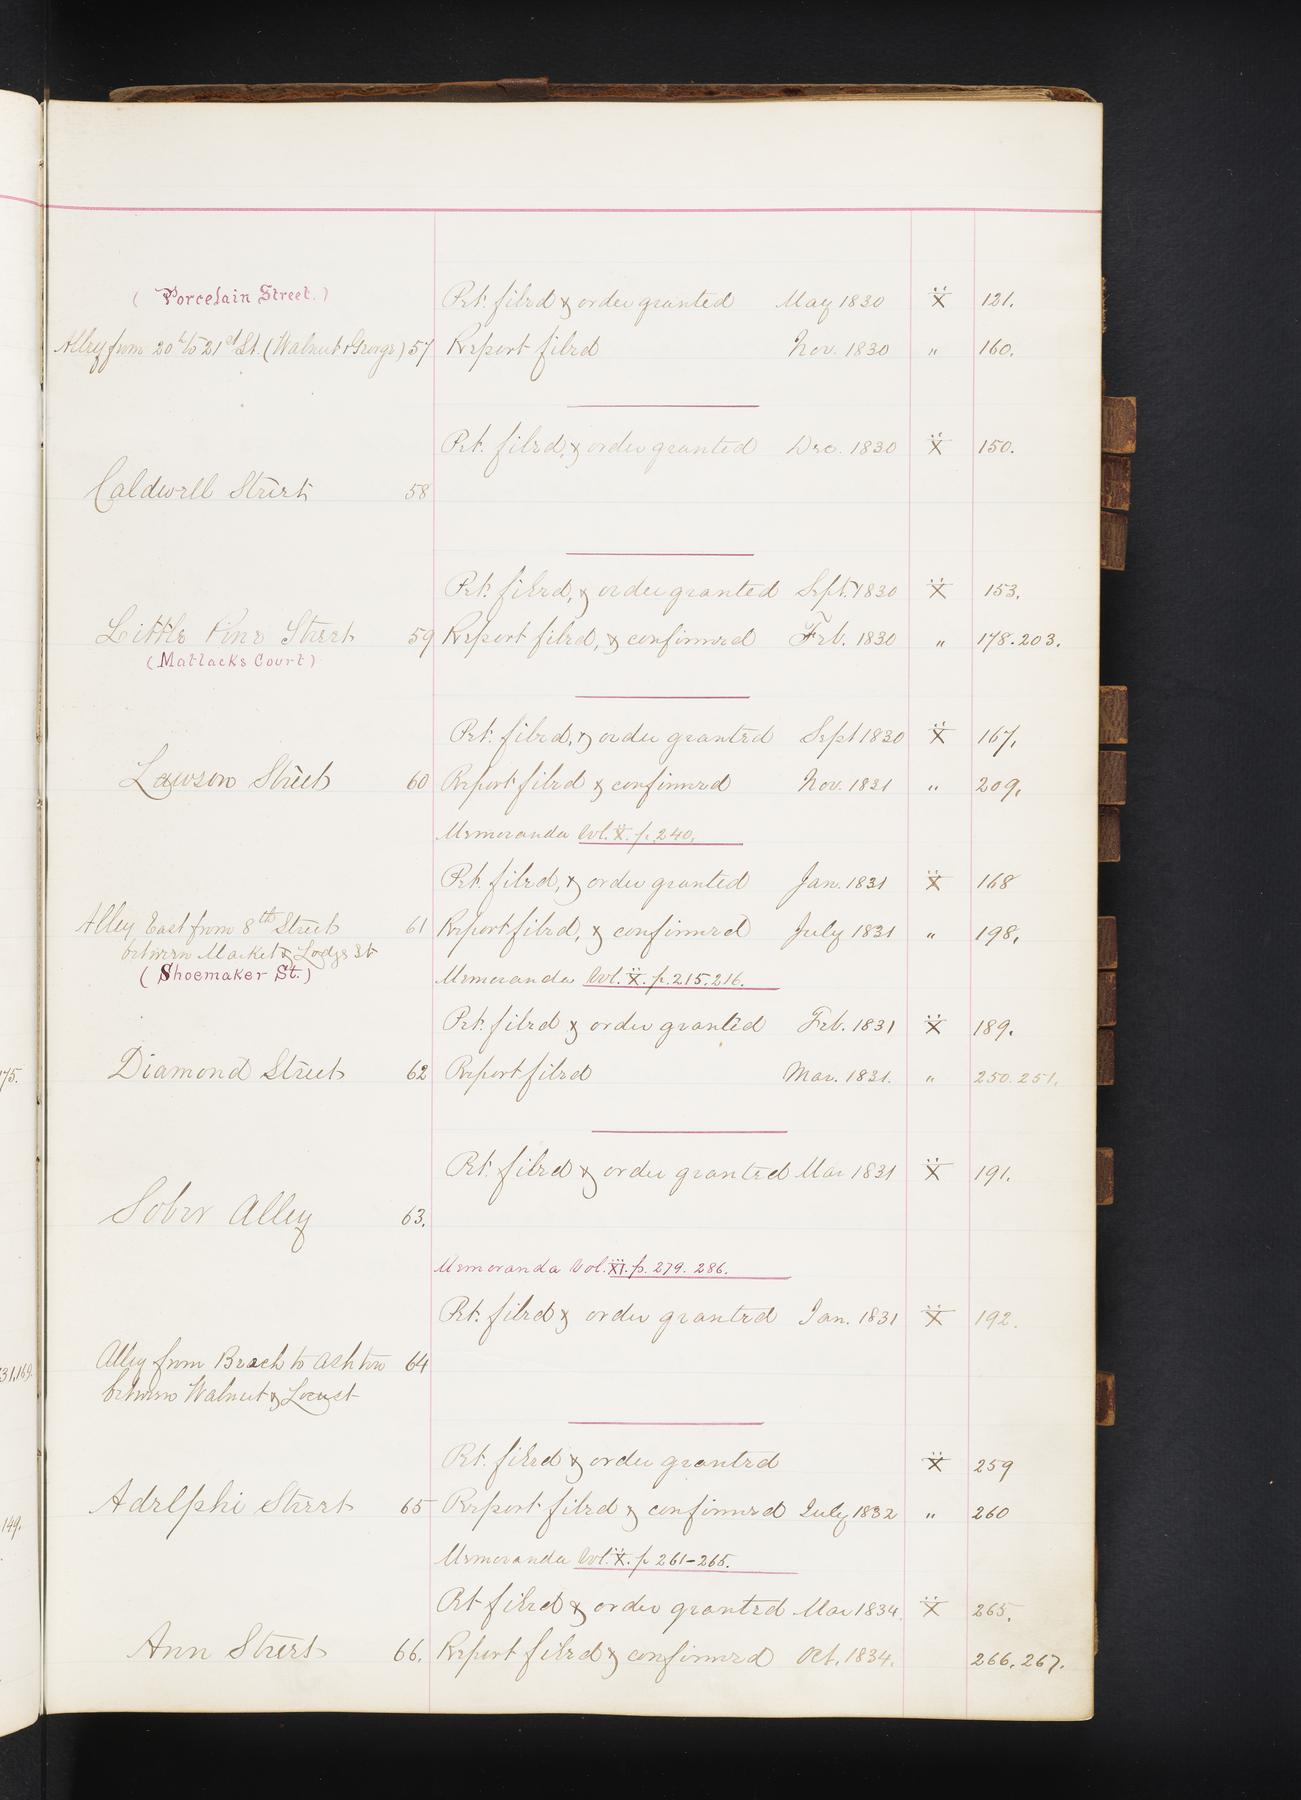 (Porcelain Street.)
Pet. filed & order granted May 1830 X 121.
Alley from 20th to 21st St. (Walnut & George) 57 Report filed Nov. 1830 " 160.
Pet. filed, & order granted Dec. 1830 X 150.
Caldwell Street 58
Pet. filed, & order granted Sept. 1830 X 153.
Little Pine Street 59 Report filed, & confirmed Feb. 1830 " 178.203.
(Matlacks Court)
Pet. filed, & order granted Sept 1830 X 167.
Lawson Street 60 Report filed & confirmed Nov. 1831 " 209.
Memoranda Vol. X. p. 240.
Pet. filed, & order granted Jan. 1831 X 168
Alley East from 8th Street 61 Report filed, & confirmed July 1831 " 198.
between Market & Lodge St
(Shoemaker St.) Memoranda Vol. X. p. 215.216.
Pet. filed & order granted Feb. 1831 X 189.
175. Diamond Street 62 Report filed Mar. 1831. " 250.251.
Pet. filed & order granted Mar 1831 X 191.
Sober Alley 63.
Memoranda Vol. XI. p. 279. 286.
Pet. filed & order granted Jan. 1831 X 192.
Alley from Beach to Ashton 64
31.169.
between Walnut & Locust
Pet. filed & order granted X 259
Adelphi Street 65 Report filed & confirmed July 1832 " 260
149.
Memoranda Vol. X. p 261-265.
Pet filed & order granted Mar 1834. X 265.
Ann Street 66. Report filed & confirmed Oct. 1834. 266.267.